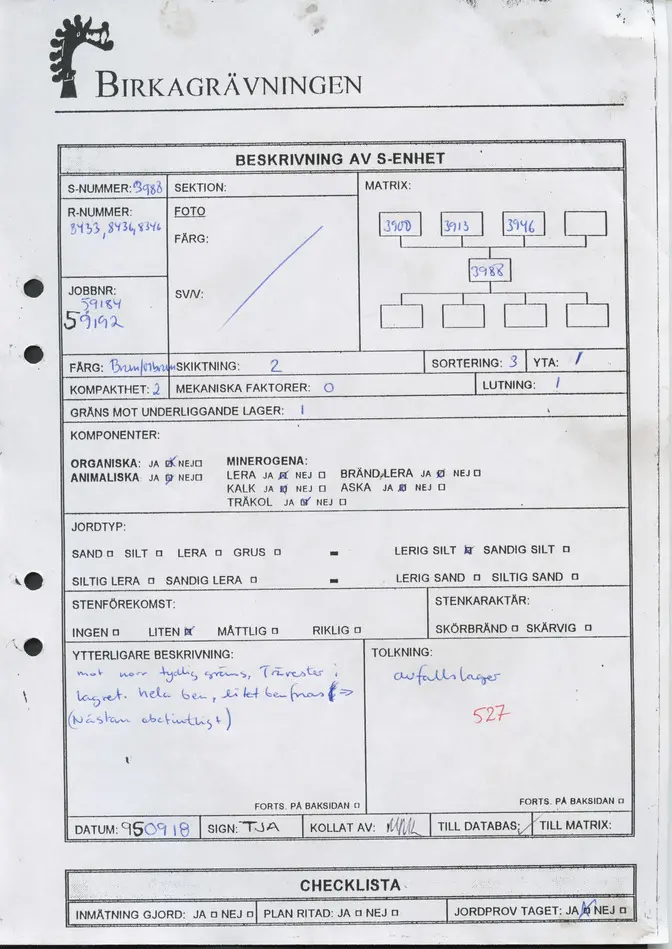 BIRKAGRÄVNINGEN
BESKRIVNING AV S-ENHET
S-NUMMER: 3988
SEKTION:
MATRIX:
R-NUMMER:
8433, 8436, 8346
FOTO
FÄRG:
SV/V:
3900 3913 3946
3988
JOBBNR:
59184
59192
FÄRG: SKIKTNING: 2 SORTERING: 3 YTA: 1
KOMPAKTHET: 2 MEKANISKA FAKTORER: 0 LUTNING: 1
GRÄNS MOT UNDERLIGGANDE LAGER: 1
KOMPONENTER:
ORGANISKA: JA ☒ NEJ ☐ MINEROGENA:
ANIMALISKA JA ☒ NEJ ☐ LERA JA ☒ NEJ ☐ BRÄND LERA JA ☒ NEJ ☐
KALK JA ☒ NEJ ☐ ASKA JA ☒ NEJ ☐
TRÄKOL JA ☒ NEJ ☐
JORDTYP:
SAND ☐ SILT ☐ LERA ☐ GRUS ☐ - LERIG SILT ☒ SANDIG SILT ☐
SILTIG LERA ☐ SANDIG LERA ☐ - LERIG SAND ☐ SILTIG SAND ☐
STENFÖREKOMST: STENKARAKTÄR:
INGEN ☐ LITEN ☒ MÅTTLIG ☐ RIKLIG ☐ SKÖRBRÄND ☐ SKÄRVIG ☐
YTTERLIGARE BESKRIVNING:
mot norr tydlig gräns, Trärester i
lagret. hela ben, litet benfnas =>
(Nästan obefintligt)
FORTS. PÅ BAKSIDAN ☐
TOLKNING:
avfallslager
527
FORTS. PÅ BAKSIDAN ☐
DATUM: 950918 SIGN: TJA KOLLAT AV: TILL DATABAS: TILL MATRIX:
CHECKLISTA
INMÄTNING GJORD: JA ☐ NEJ ☐ PLAN RITAD: JA ☐ NEJ ☐ JORDPROV TAGET: JA ☒ NEJ ☐